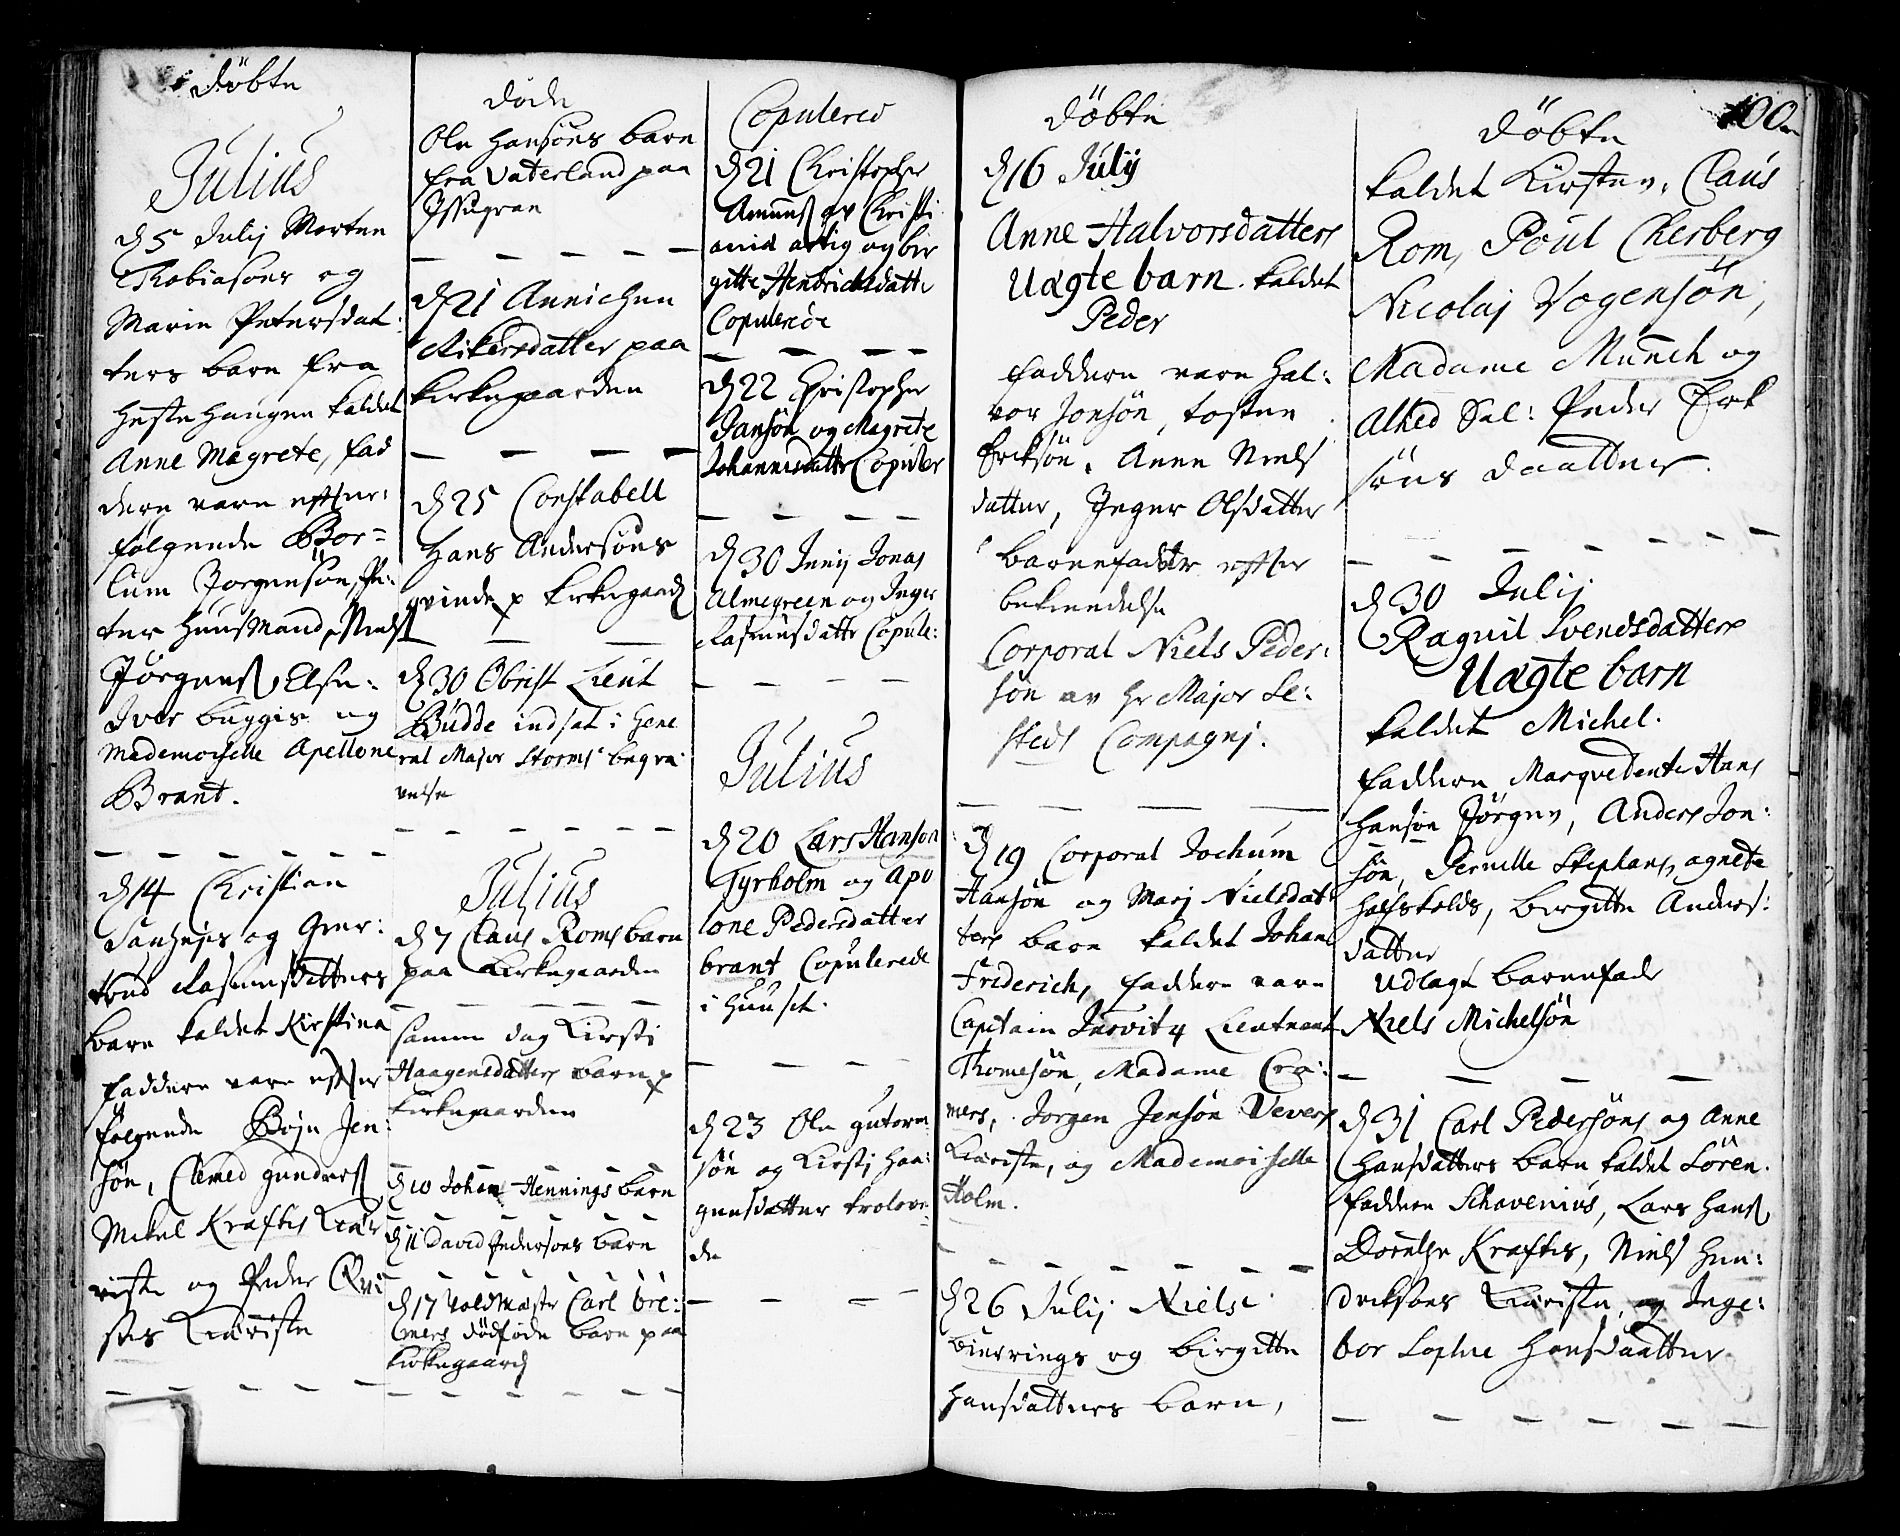 Döbte
Julius
D 5 Julij Morten
Thobiasöns og
Marie Petersdat:
ters barn fra
Hestehaugen kaldet
Anne Magrete, fad
dere vare efter:
følgende Bor=
lum Jörgensön, Pe:
ter Huusmand, Niels
Jörgens, Else
Iver Bugges og
Mademoiselle Apellone
Brant.
D 14 Christian
og Giær:
trud Rasmusdatters
barn kaldet Kirstina
faddere vare efter
følgende Böje Jen
sön, Clemed Gunders
Mikel Krafts
og Peder Qvi
stes
Döde
Ole Hansöns barn
fra Vaterland paa
D 21 Annichen
paa
Kirkegaarden
D 25 Constabell
Hans Andersöns
qvinde p Kirkegaard
D 30 Obrist Lieut
Budde indsat i Gene
ral Major Storms begra
velse
Julius
D 7 Claus Roms barn
paa Kirkegaarden
samme dag Kirsti
Haagensdatters barn p
Kirkegaarden
D 10 Johan Hennings barn
D 11 David Pedersöns barn
D 17 Voldmester Carl Cre:
mers dödföde barn paa
Kirkegaard
Copulered
D 21 Christopher
Christi
og bir
gitte Hendrichsdatte
Copulerede
D 22 Christopher
Jansön og Magrete
Johannisdattr Copuler
D 30 Junij Jonas
Almegreen og Inger
Rasmusdattr Copule:
Julius
D 20 Lars Hanson
Tyrholm og Apo
lone Pedersdatter
brant Copulerede
i Huuset.
D 23 Ole Gutorm
sön og Kirstj Haa:
gensdatter trolove:
de
Döbte
D 16 Julij
Anne Halvorsdatters
Uægte barn kaldet
Peder
faddere vare Hal:
vor Jonsön, tosten
Ericksön, Anne Niels
datter, Inger Olsdatter
barnefader efter
bekiendelse
Corporal Niels Peder:
sön av Hr Major Se:
steds Compagnj.
D 19 Corporal Jochum
Hansön og Marj Nielsdat
ters barn kaldet Johan
Friderich, faddere vare
Capitain Lieutnant
Thomesön, Madame Cra:
mers, Jörgen Jensön Vevers
og Mademoiselle
Holm.
D 26 Julij Niels
Bierrings og Birgitte
Hansdatters barn,
100
Döbte
kaldet Kirsten, Claus
Rom, Poul Cherberg
Nicolaj Vogensön,
Madame Munch og
Alhed Sal: Peder Erk
söns daatter.
D 30 Julij
Ragnil Svendsdatters
Uægte barn
kaldet Michel.
faddere Marqvedenter Hans
Hansön Jörgen, Anders Jon:
sön, Pernille Stephans, agnete
Halfskolds, birgitte Anders:
datter
Udlagt barnefadr
Niels Michelsön
D 31 Carl Pedersöns og Anne
Hansdatters barn kaldet Sören.
faddere Schavenius, Lars Hans
Dorethe Krafts, Niels Hen:
dricksöns og Inge:
bor Sophie Hansdaatter